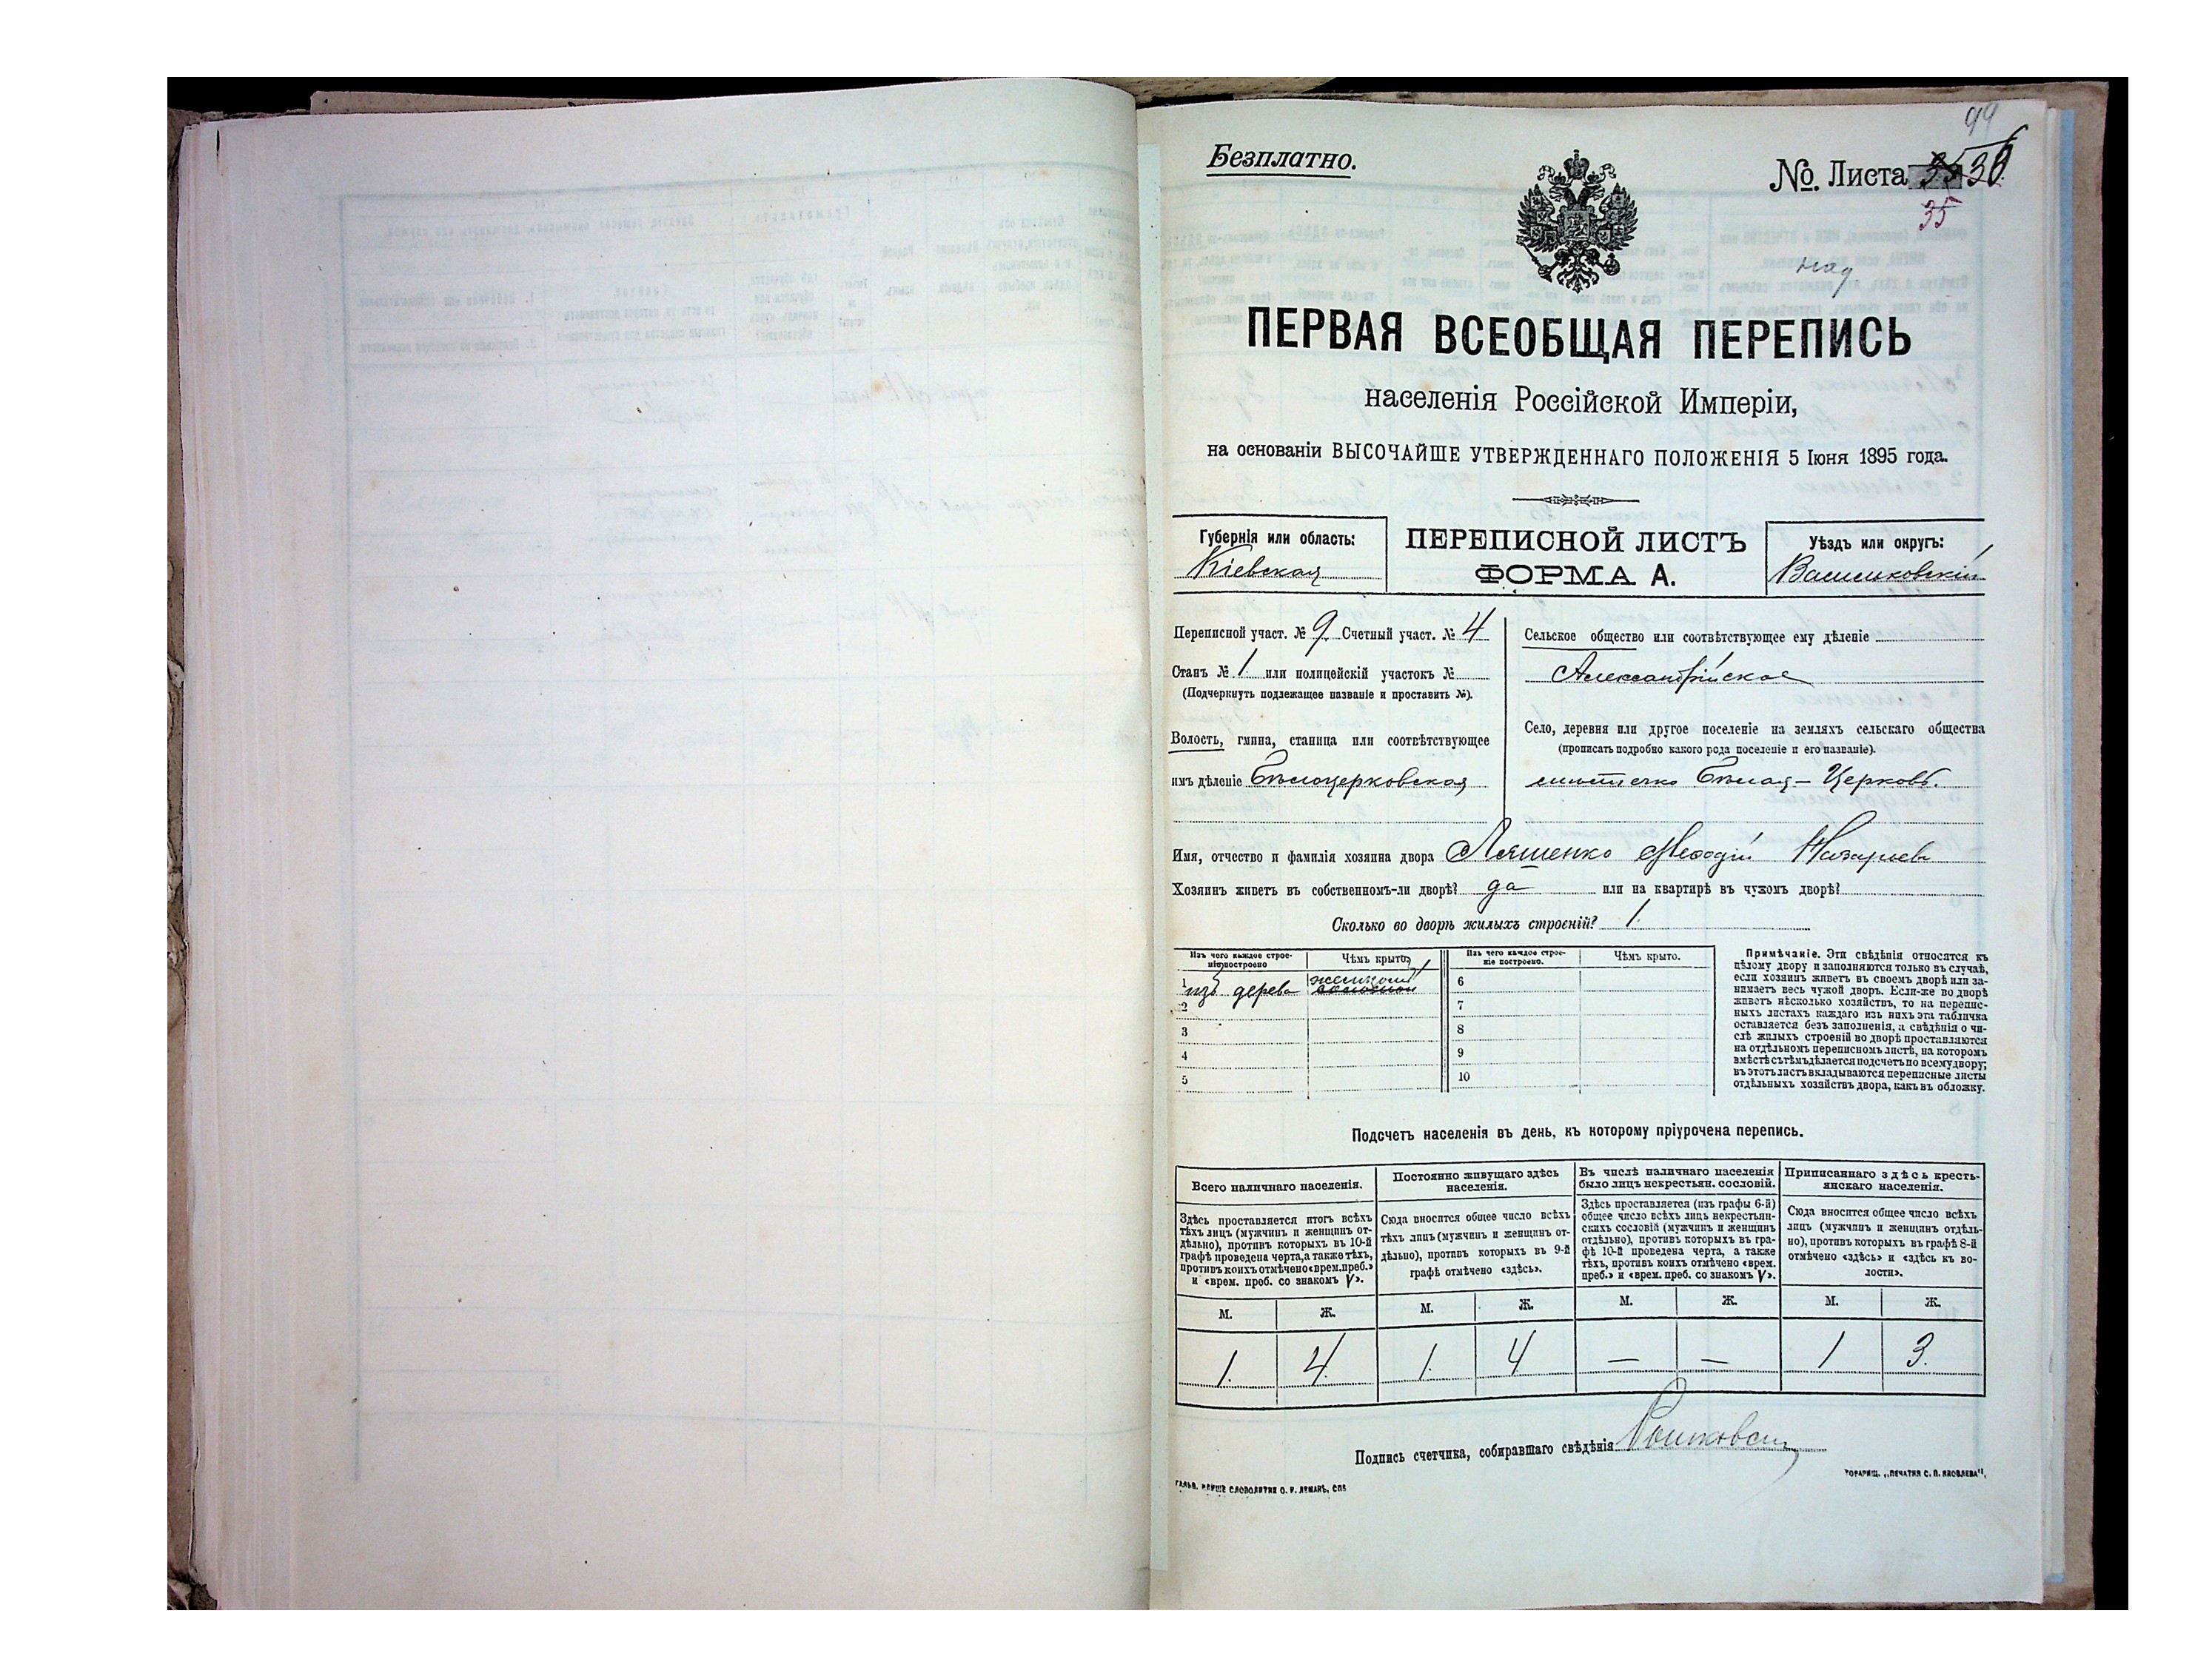 99
Безплатно.
№. Листа 35 36
35
ПЕРВАЯ ВСЕОБЩАЯ ПЕРЕПИСЬ
населенія Россійской Имперіи,
на основаніи ВЫСОЧАЙШЕ УТВЕРЖДЕННАГО ПОЛОЖЕНІЯ 5 Іюня 1895 года.
Губернія или область:
Кіевская
ПЕРЕПИСНОЙ ЛИСТЪ
ФОРМА А.
Уѣздъ или округъ:
Васильковскій
Переписной участ. № 9. Счетный участ. № 4
Станъ № 1 или полицейскій участокъ №
(Подчеркнуть подлежащее названіе и проставить №).
Волость, гмина, станица или соотвѣтствующее
имъ дѣленіе Бѣлоцерковская
Сельское общество или соотвѣтствующее ему дѣленіе
Александрійское
Село, деревня или другое поселеніе на земляхъ сельскаго общества
(прописать подробно какого рода поселеніе и его названіе).
мѣстечко Бѣлая-Церковь.
Имя, отчество и фамилія хозяина двора Ляшенко Меѳодій Назаріевъ
Хозяинъ живетъ въ собственномъ-ли дворѣ? да или на квартирѣ въ чужомъ дворѣ?
Сколько во дворѣ жилыхъ строеній? 1.
Изъ чего каждое строе-
ніе построено
Чѣмъ крыто
Изъ чего каждое строе-
ніе построено.
Чѣмъ крыто.
1 изъ дерева
2
3
4
5
6
7
8
9
10
Примѣчаніе. Эти свѣдѣнія относятся къ
цѣлому двору и заполняются только въ случаѣ,
если хозяинъ живетъ въ своемъ дворѣ или за-
нимаетъ весь чужой дворъ. Если-же во дворѣ
живетъ нѣсколько хозяйствъ, то на перепис-
ныхъ листахъ каждаго изъ нихъ эта табличка
оставляется безъ заполненія, а свѣдѣнія о чи-
слѣ жилыхъ строеній во дворѣ проставляются
на отдѣльномъ переписномъ листѣ, на которомъ
вмѣстѣ съ тѣмъ дѣлается подсчетъ по всему двору;
въ этотъ листъ вкладываются переписные листы
отдѣльныхъ хозяйствъ двора, какъ въ обложку.
Подсчетъ населенія въ день, къ которому пріурочена перепись.
Всего наличнаго населенія.
Здѣсь проставляется итогъ всѣхъ
тѣхъ лицъ (мужчинъ и женщинъ от-
дѣльно), противъ которыхъ въ 10-й
графѣ проведена черта, а также тѣхъ,
противъ коихъ отмѣчено «врем. преб.»
и «врем. преб. со знакомъ V».
Постоянно живущаго здѣсь
населенія.
Сюда вносится общее число всѣхъ
тѣхъ лицъ (мужчинъ и женщинъ от-
дѣльно), противъ которыхъ въ 9-й
графѣ отмѣчено «здѣсь».
Въ числѣ наличнаго населенія
было лицъ некрестьян. сословій.
Здѣсь проставляется (изъ графы 6-й)
общее число всѣхъ лицъ некрестьян-
скихъ сословій (мужчинъ и женщинъ
отдѣльно), противъ которыхъ въ гра-
фѣ 10-й проведена черта, а также
тѣхъ, противъ коихъ отмѣчено «врем.
преб.» и «врем. преб. со знакомъ V».
Приписаннаго здѣсь кресть-
янскаго населенія.
Сюда вносится общее число всѣхъ
лицъ (мужчинъ и женщинъ отдѣль-
но), противъ которыхъ въ графѣ 8-й
отмѣчено «здѣсь» и «здѣсь къ во-
лости».
М. Ж. М. Ж. М. Ж. М. Ж.
1. 4. 1. 4 — — 1 3.
Подпись счетчика, собиравшаго свѣдѣнія
ТОВАРИЩ. „ПЕЧАТНЯ С. П. ЯКОВЛЕВА“.
СЛОВОЛИТНИ О. И. ЛЕМАНЪ, СПБ